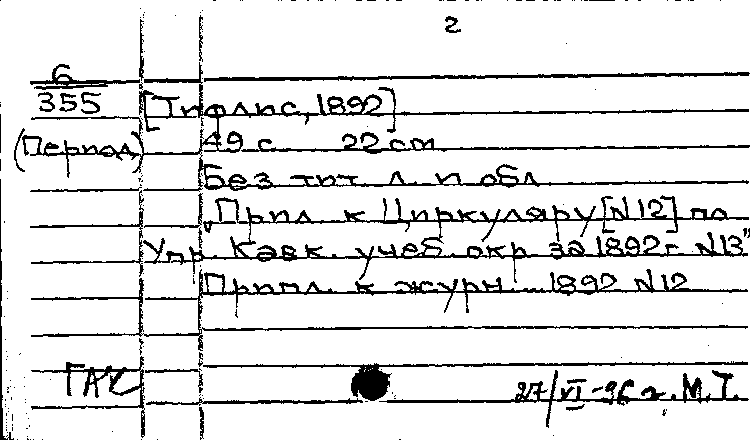 2
6
355 [Тифлис, 1892]
(Период) 49 с. 22 cm.
Без тит. л. и обл.
„Прил. к Циркуляру [N12] по
Упр. Кавк. учеб. окр. за 1892 г. N13"
Прил. к журн... 1892 N12
ГАК 27/VI-96 г. М.Т.